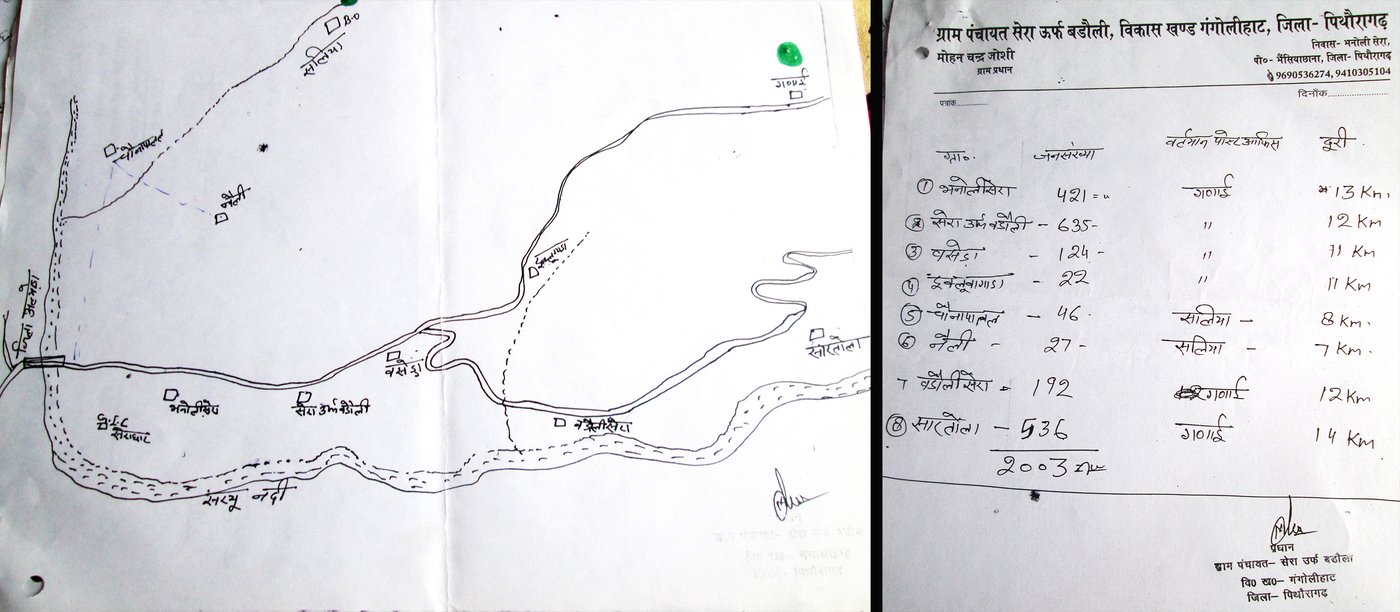 B.O
सलिया
गणाई
चौनापातल
नैली
इक्लूवागाडा
जिला अल्मोड़ा
वसेड़ा
सारतोला
भनोलीसेरा
सेरा उर्फ वडौली
G.I.C
सेराघाट
वडौलीसेरा
सरयू नदी
ग्राम पंचायत सेरा ऊर्फ बडौली, विकास खण्ड गंगोलीहाट, जिला- पिथौरागढ़
मोहन चन्द्र जोशी
ग्राम प्रधान
निवास- भनोली सेरा,
पो०- भैंसियाछाना, जिला- पिथौरागढ़
9690536274, 9410305104
पत्रांक............
दिनाँक....................
ग्रा०. जनसंख्या वर्तमान पोस्ट आफिस दूरी
① भनोलीसेरा 421 = " गणाई 13 Km.
② सेरा उर्फ वडौली - 635 - " 12 Km
③ वसेड़ा - 124 - " 11 Km
④ इक्लूवागाडा - 22 " 11 Km
⑤ चौनापातल - 46. सलिया - 8 Km.
⑥ नैली - 27 - सलिया - 7 Km.
7 वडौलीसेरा - 192 गणाई 12 Km
⑧ सारतोला - 536 गणाई 14 Km
2003
प्रधान
ग्राम पंचायत- सेरा उर्फ बडौला
वि० ख०- गंगोलीहाट
जिला- पिथौरागढ़